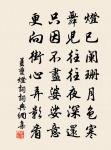 燈已闌珊月色寒
舞兒往往夜深還
只因不盡婆娑意
更向街心弄影看